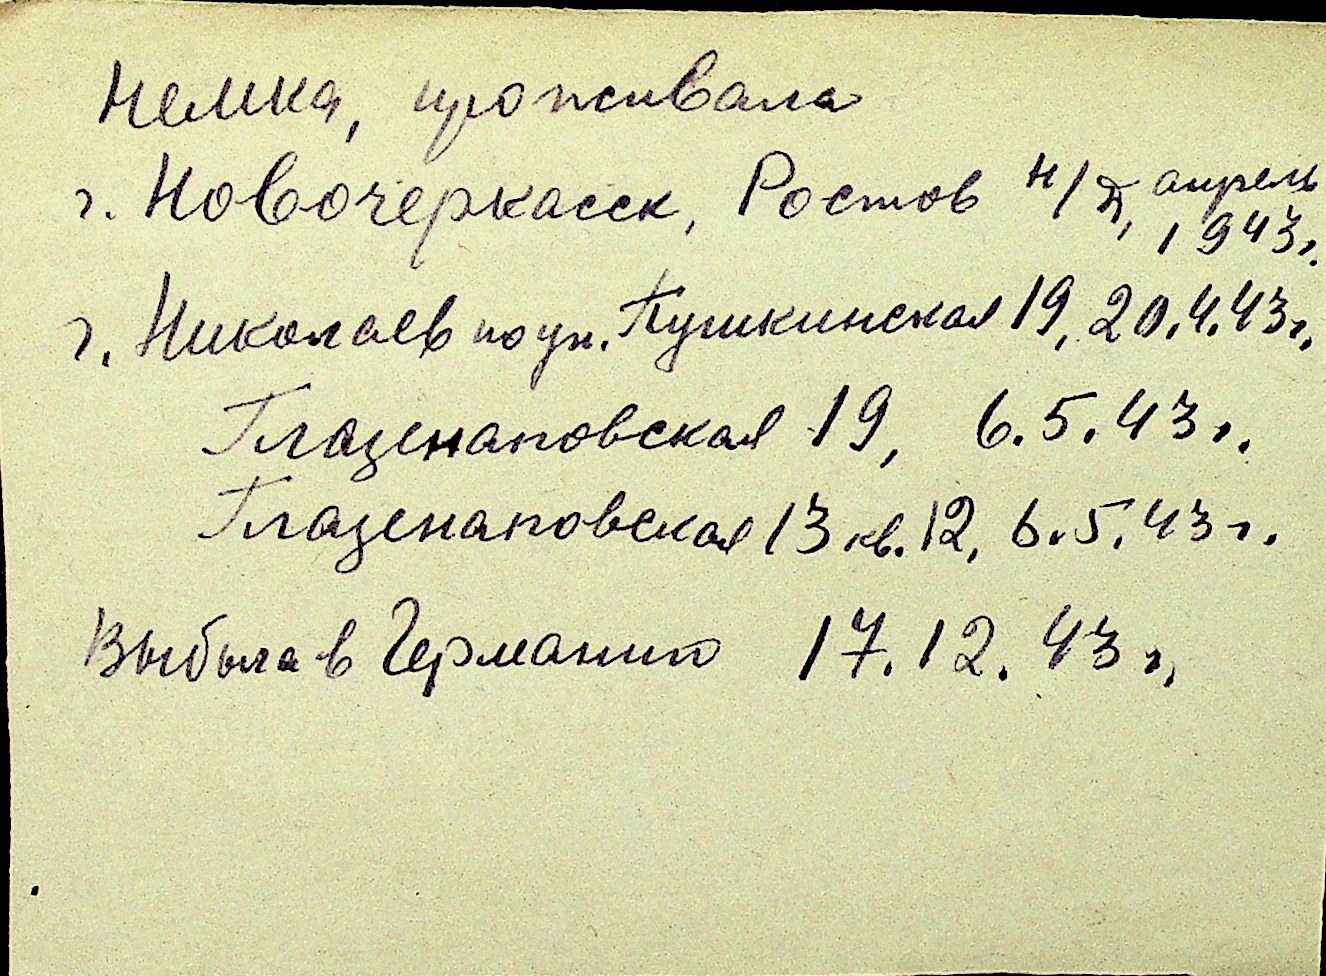 Немка, проживала
г. Новочеркасск, Ростов н/Д, апрель
1943г.
г. Николаев по ул. Пушкинская 19, 20.4.43г.
Глазенаповская 19, 6.5.43г.
Глазенаповская 13 кв. 12, 6.5.43г.
Выбыла в Германию 17.12.43г.